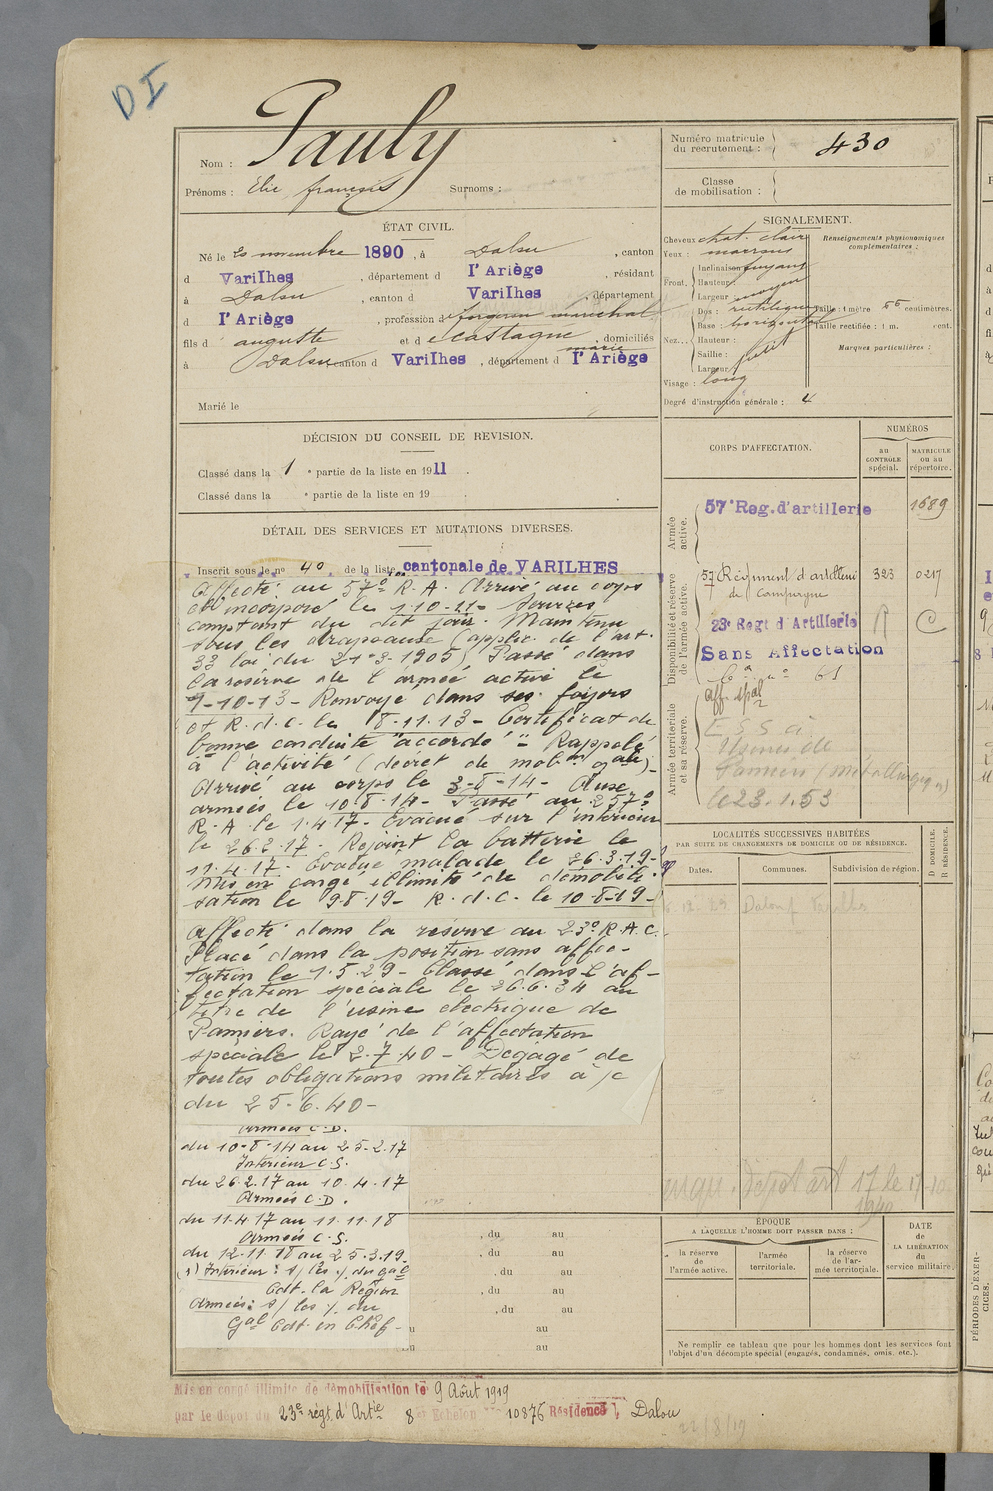 DI
Pauly
Nom :
Prénoms : Elie françois Surnoms :
Numéro matricule
du recrutement : 430
Classe
de mobilisation :
ÉTAT CIVIL.
Né le 20 novembre 1890, à Dalou, canton
d Varilhes, département d l'Ariège, résidant
à Dalou, canton d Varilhes, département
d l'Ariège, profession d forgeron maréchal
fils d auguste et d e castagne marie domiciliés
à Dalou canton d Varilhes, département d l'Ariège
Marié le
SIGNALEMENT.
Cheveux chat. clair
Yeux : marrons
Front. Inclinaison fuyant
Hauteur :
Largeur moyen
Nez... Dos : rectiligne
Base : horizontal
Hauteur :
Saillie : petit
Largeur
Visage : long
Renseignements physionomiques
complémentaires :
Taille : 1 mètre 66 centimètres.
Taille rectifiée : 1 m. cent.
Marques particulières :
Degré d'instruction générale : 4
DÉCISION DU CONSEIL DE REVISION.
Classé dans la 1e partie de la liste en 1911.
Classé dans la e partie de la liste en 19 .
DÉTAIL DES SERVICES ET MUTATIONS DIVERSES.
Inscrit sous le no 40 de la liste cantonale de VARILHES
Affecté au 57e R.A. Arrivé au corps
et incorporé le 1-10-11- Services
comptant du dit jour. Maintenu
sous les drapeaux (applic. de l'art.
33 loi du 21-3-1905) Passé dans
la réserve de l'armée active le
1-10-13- Renvoyé dans ses foyers
et R.d.c. le 8-11-13- Certificat de
bonne conduite "accordé"- Rappelé
à l'activité (décret de mobon gale)-
Arrivé au corps le 3-8-14- Aux
armées le 10.8.14- Passé au 257e
R.A. le 1.4.17- Évacué sur l'intérieur
le 26.2.17. Rejoint la batterie le
11.4.17. Évacué malade le 26.3.19-
Mis en congé illimité de démobili-
sation le 9.8.19- R.d.c. le 10-8-19-
Affecté dans la réserve au 23e R.A.C.
Placé dans la position sans affec-
tation le 1.5.29- Classé dans l'af-
fectation spéciale le 26.6.34 au
titre de l'usine électrique de
Pamiers. Rayé de l'affectation
spéciale le 2.7.40- Dégagé de
toutes obligations militaires à /c
du 25-6.40-
Armées C.D.
du 10-8-14 au 25-2.17
Intérieur C.S.
du 26.2.17 au 10.4.17
Armées C.D.
du 11.4.17 au 11.11.18
Armées C.S.
du 12.11.18 au 25.3.19.
(1) Intérieur : s/ les /. du Gal
Cdt. la Région
Armées : s/ les /. du
Gal Cdt. en Chef-
, du au
, du au
, du au
, du au
, du au
au
du au
CORPS D'AFFECTATION.
NUMÉROS
au
CONTRÔLE
spécial.
MATRICULE
ou au
répertoire.
Armée
active.
57e Reg. d'artillerie 1689
Disponibilité et réserve
de l'armée active.
57 Régiment d'artillerie 323 0217
de Campagne
23e Regt d'Artillerie C
Sans Affectation
61
Armée territoriale
et sa réserve.
Aff. spal
E S S à
Usines de
Pamiers (métallurgique)
le 23.1.53
LOCALITÉS SUCCESSIVES HABITÉES
PAR SUITE DE CHANGEMENTS DE DOMICILE OU DE RÉSIDENCE.
Dates. Communes. Subdivision de région. D DOMICILE. R RÉSIDENCE.
Dalou
Dépôt art 17 le
1940
ÉPOQUE
A LAQUELLE L'HOMME DOIT PASSER DANS :
la réserve
de l'armée active.
l'armée
territoriale.
la réserve
de l'ar-
mée territoriale.
DATE
de
LA LIBÉRATION
du
service militaire.
Ne remplir ce tableau que pour les hommes dont les services font
l'objet d'un décompte spécial (engagés, condamnés, omis, etc.).
Mis en congé illimité de démobilisation le 9 Août 1919
par le dépôt du 23e régt d'Artie 8e Echelon no 10876 Résidence Dalou
22/8/19
PÉRIODES D'EXER-
CICES.